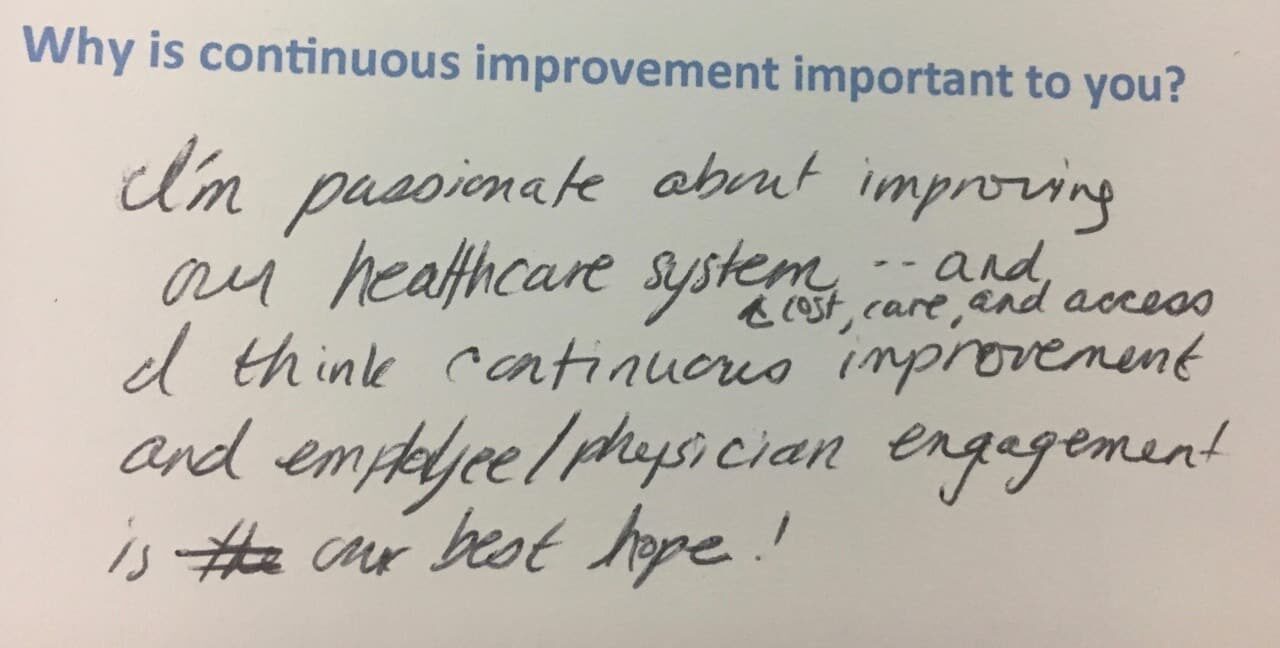 Why is continuous improvement important to you?
I'm passionate about improving
our healthcare system -- and
↑ cost, care, and access
I think continuous improvement
and employee/physician engagement
is the our best hope!